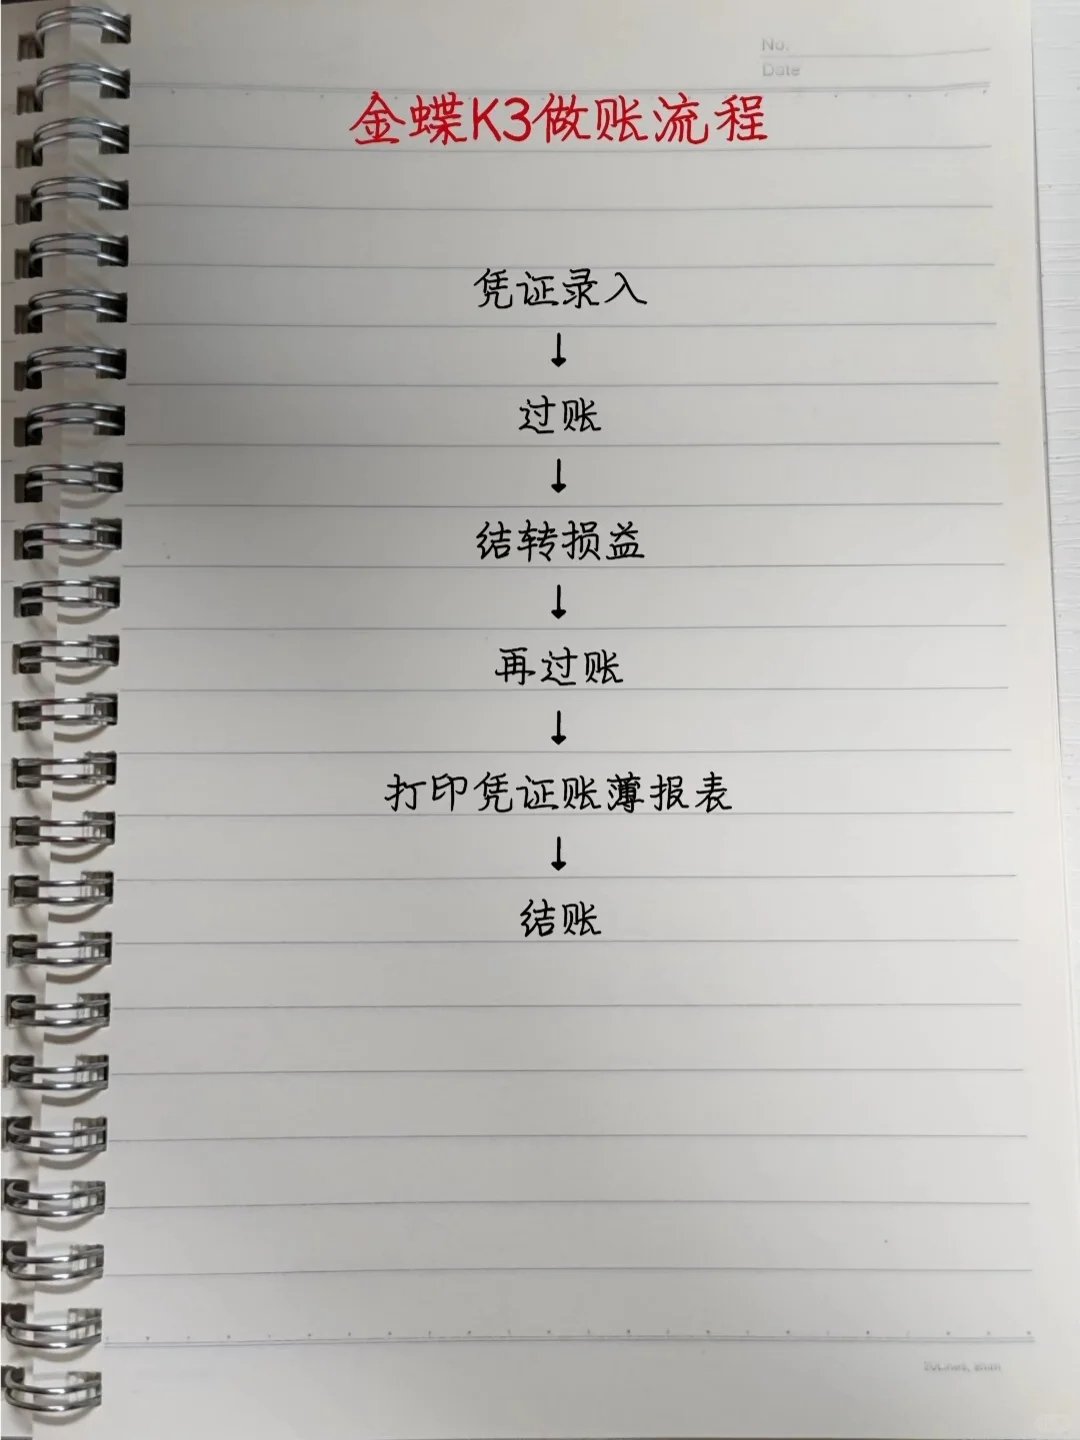 No.
Date
金蝶K3做账流程
凭证录入
↓
过账
↓
结转损益
↓
再过账
↓
打印凭证账薄报表
↓
结账